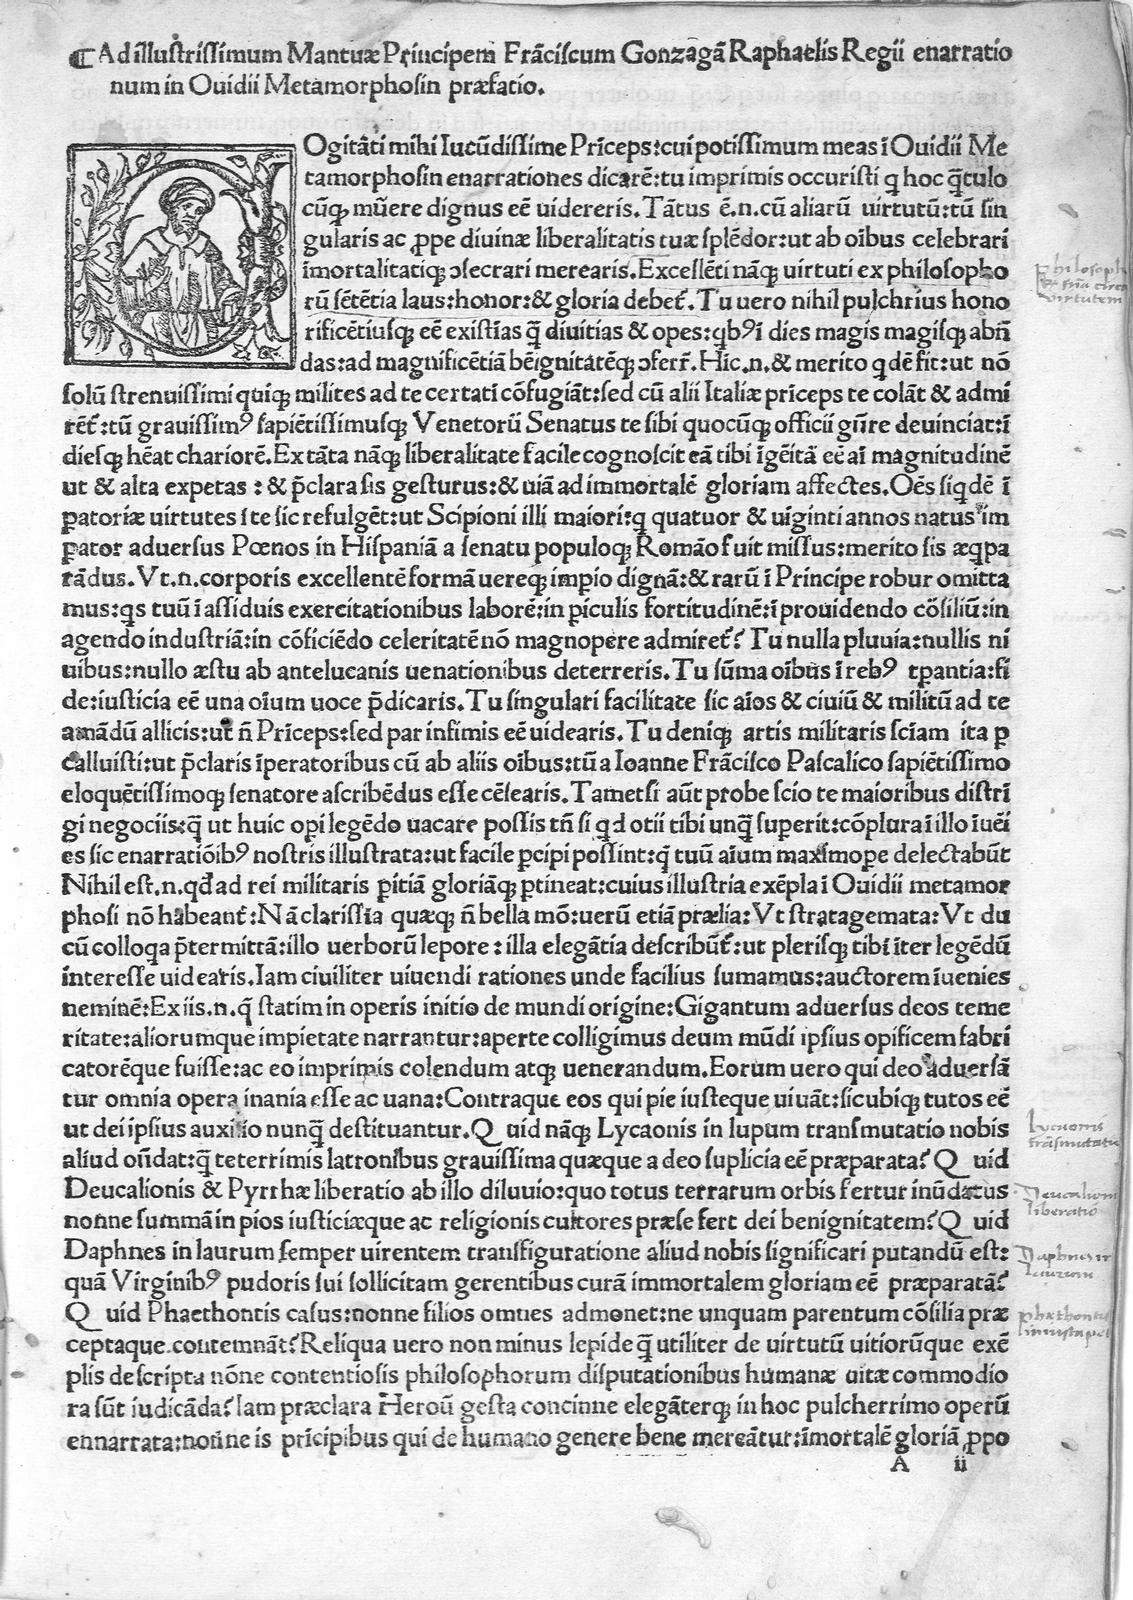 ⁌ Ad illuſtriſſimum Mantuæ Principem Frāciſcum Gonzagā Raphaelis Regii enarratio
num in Ouidii Metamorphoſin præfatio.
COgitāti mihi Iucūdiſſime Prīceps:cui potiſſimum meas ī Ouidii Me
tamorphoſin enarrationes dicarē:tu imprimis occuriſti q hoc q̄tulo
cūqꝫ mūere dignus eē uidereris. Tātus ē.n.cū aliarū uirtutū:tū ſin
gularis ac ꝓpe diuinæ liberalitatis tuæ ſplēdor:ut ab oībus celebrari
īmortalitatiqꝫ ↄſecrari merearis. Excellēti nāqꝫ uirtuti ex philoſopho
rū ſētētia laus:honor:& gloria debet᷑. Tu uero nihil pulchrius hono
rificētiuſqꝫ eē exiſtīas q̄ diuitias & opes:qbꝰ ī dies magis magiſqꝫ abū
das:ad magnificētiā bēignitatēqꝫ ↄferr̄. Hic.n.& merito qdē fit:ut nō
ſolū ſtrenuiſſimi quiqꝫ milites ad te certati cōfugiāt:ſed cū alii Italiæ prīceps te colāt & admi
rēt᷑:tū grauiſſimꝰ ſapiētiſſimuſqꝫ Venetorū Senatus te ſibi quocūqꝫ officii gn̄re deuinciat:ī
dieſqꝫ hēat chariorē. Ex tāta nāqꝫ liberalitate facile cognoſcit eā tibi īgēitā eē ai magnitudinē
ut & alta expetas : & p̄clara ſis geſturus:& uiā ad immortalē gloriam affectes. Oēs ſiqdē ī
ꝑatoriæ uirtutes ī te ſic refulgēt:ut Scipioni illi maiori:q quatuor & uiginti annos natus im
ꝑator aduerſus Pœnos in Hiſpaniā a ſenatu populoqꝫ Romāo fuit miſſus:merito ſis æqpa
rādus. Vt.n.corporis excellentē formā uereqꝫ impio dignā:& rarū ī Principe robur omitta
mus:qs tuū ī aſſiduis exercitationibus laborē:in ꝑiculis fortitudinē:ī prouidendo cōſiliū:in
agendo induſtriā:in cōficiēdo celeritatē nō magnopere admiret᷑? Tu nulla pluuia:nullis ni
uibus:nullo æſtu ab antelucanis uenationibus deterreris. Tu ſūma oībus ī rebꝰ tꝑantia:fi
de:iuſticia eē una oīum uoce p̄dicaris. Tu ſingulari facilitate ſic aios & ciuiū & militū ad te
amādū allicis:ut n̄ Prīceps:ſed par infimis eē uidearis. Tu deniqꝫ artis militaris ſciam ita ꝑ
calluiſti:ut p̄claris īperatoribus cū ab aliis oībus:tū a Ioanne Frāciſco Paſcalico ſapiētiſſimo
eloquētiſſimoqꝫ ſenatore aſcribēdus eſſe cēſearis. Tametſi aūt probe ſcio te maioribus diſtrī
gi negociis:q̄ ut huic opi legēdo uacare poſſis tn̄ ſi qd otii tibi unq̄ ſuperit:cōplura ī illo īuēi
es ſic enarratiōibꝰ noſtris illuſtrata:ut facile ꝑcipi poſſint:q̄ tuū aīum maximope delectabūt
Nihil eſt.n.qd ad rei militaris ꝑitiā gloriāqꝫ ꝑtineat:cuius illuſtria exēpla ī Ouidii metamor
phoſi nō habeant᷑:Nā clariſſīa quæqꝫ n̄ bella mō:uerū etiā prælia:Vt ſtratagemata:Vt du
cū colloqa p̄termittā:illo uerborū lepore : illa elegātia deſcribūt᷑:ut pleriſqꝫ tibi īter legēdū
intereſſe uidearis. Iam ciuiliter uiuendi rationes unde facilius ſumamus:auctorem īuenies
neminē:Ex iis.n.q̄ ſtatim in operis initio de mundi origine:Gigantum aduerſus deos teme
ritate:aliorumque impietate narrantur:aperte colligimus deum mūdi ipſius opificem fabri
catorēque fuiſſe:ac eo imprimis colendum atqꝫ uenerandum. Eorum uero qui deo aduerſā
tur omnia opera inania eſſe ac uana:Contraque eos qui pie iuſteque uiuāt:ſicubiqꝫ tutos eē
ut dei ipſius auxilio nunq̄ deſtituantur. Quid nāqꝫ Lycaonis in lupum tranſmutatio nobis
aliud on̄dat:q̄ teterrimis latronibus grauiſſima quæque a deo ſuplicia eē præparata? Quid
Deucalionis & Pyrrhæ liberatio ab illo diluuio:quo totus terrarum orbis fertur inūdatus
nonne ſummā in pios iuſticiæque ac religionis cultores præ ſe fert dei benignitatem? Quid
Daphnes in laurum ſemper uirentem tranſfiguratione aliud nobis ſignificari putandū eſt:
quā Virginibꝰ pudoris ſui ſollicitam gerentibus curā immortalem gloriam eē præparatā?
Quid Phaethontis caſus:nonne filios omnes admonet:ne unquam parentum cōſilia præ
ceptaque contemnāt? Reliqua uero non minus lepide q̄ utiliter de uirtutū uitiorūque exē
plis deſcripta nōne contentioſis philoſophorum diſputationibus humanæ uitæ commodio
ra ſūt iudicāda? Iam præclara Heroū geſta concinne elegāterqꝫ in hoc pulcherrimo operū
ennarrata:nonne is prīcipibus qui de humano genere bene mereātur:īmortalē gloriā ꝓpo
A ii
Lycaonis
tranſmutatio
Deucalionis
liberatio
Daphnes in
laurum